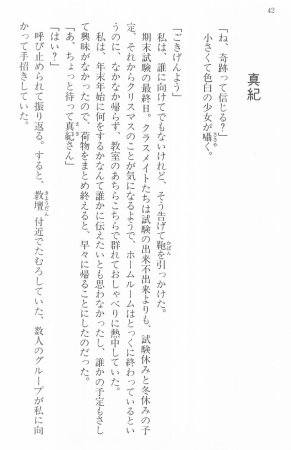 42
真紀
「ね、奇跡って信じる?」
小さくて色白の少女が囁く。
「ごきげんよう」
私は、誰に向けてでもないけれど、そう告げて鞄を引っかけた。
期末試験の最終日。クラスメイトたちは試験の出来不出来よりも、試験休みと冬休みの予
定、それからクリスマスのことが気になるようで、ホームルームはとっくに終わっているとい
うのに、なかなか帰らず、教室のあちらこちらで群れておしゃべりに熱中していた。
私は、年末年始に何をするかなんて誰かに伝えたいとも思わなかったし、誰かの予定もさし
て興味がなかったので、荷物をまとめ終えると、早々に帰ることにしたのだった。
「あ、ちょっと待って真紀さん」
「はい?」
呼び止められて振り返る。すると、教壇付近でたむろしていた、数人のグループが私に向
かって手招きしていた。